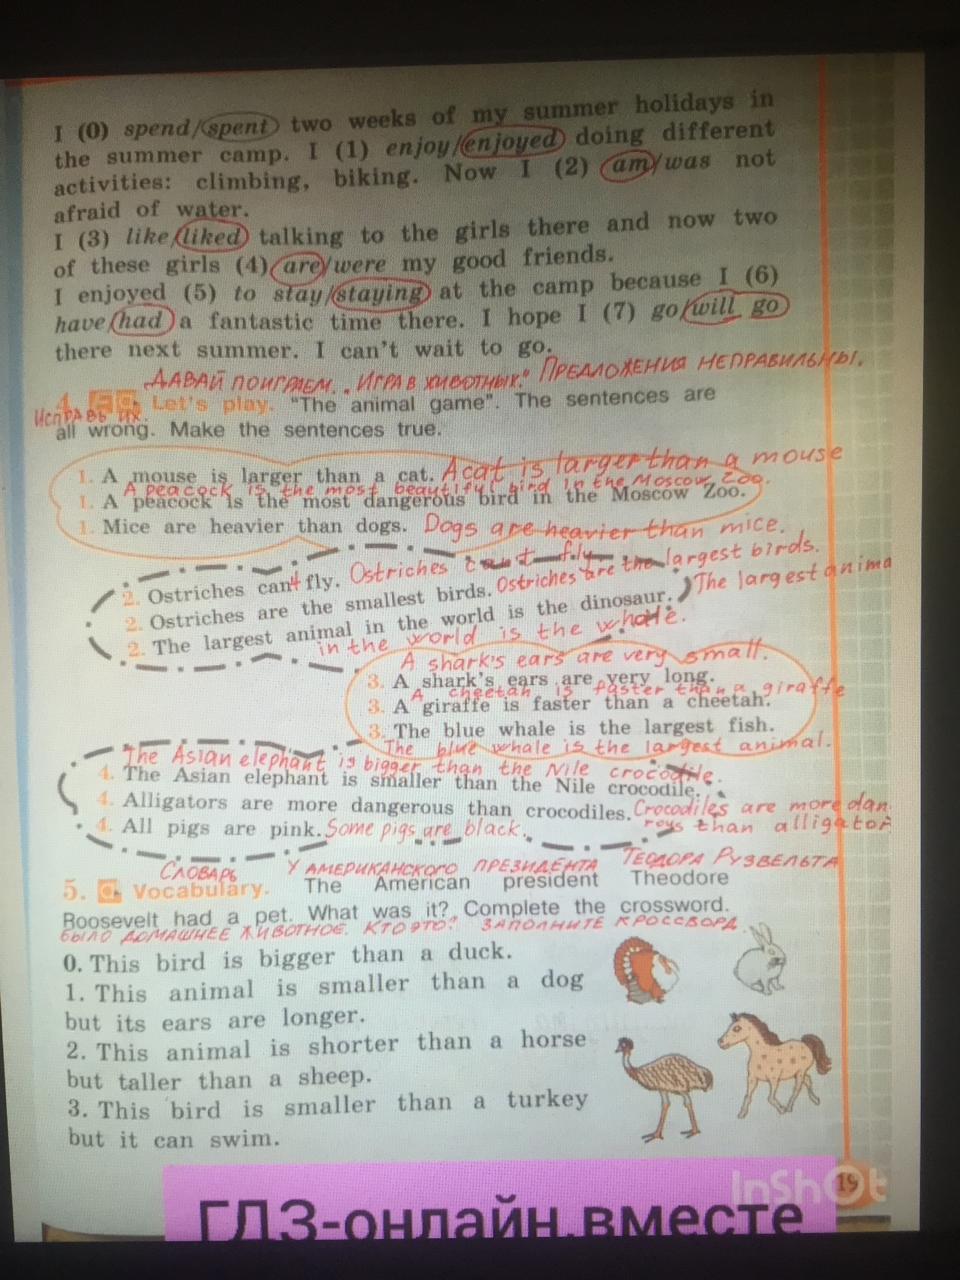 I (0) spend/spent two weeks of my summer holidays in
the summer camp. I (1) enjoy/enjoyed doing different
activities: climbing, biking. Now I (2) am/was not
afraid of water.
I (3) like/liked talking to the girls there and now two
of these girls (4) are/were my good friends.
I enjoyed (5) to stay/staying at the camp because I (6)
have/had a fantastic time there. I hope I (7) go/will go
there next summer. I can't wait to go.
ДАВАЙ ПОИГРАЕМ. „ИГРА В ЖИВОТНЫХ." ПРЕДЛОЖЕНИЯ НЕПРАВИЛЬНЫ.
4. Let's play. "The animal game". The sentences are
ИСПРАВЬ ИХ.
all wrong. Make the sentences true.
1. A mouse is larger than a cat. A cat is larger than a mouse
A peacock is the most beautiful bird in the Moscow Zoo.
1. A peacock is the most dangerous bird in the Moscow Zoo.
1. Mice are heavier than dogs. Dogs are heavier than mice.
2. Ostriches can fly. Ostriches can't fly
2. Ostriches are the smallest birds. Ostriches are the largest birds.
2. The largest animal in the world is the dinosaur. The largest anima
in the world is the whale.
A shark's ears are very small.
3. A shark's ears are very long.
A cheetah is faster than a giraffe
3. A giraffe is faster than a cheetah.
3. The blue whale is the largest fish.
The blue whale is the largest animal.
The Asian elephant is bigger than the Nile crocodile.
4. The Asian elephant is smaller than the Nile crocodile.
4. Alligators are more dangerous than crocodiles. Crocodiles are more dan
4. All pigs are pink. Some pigs are black. rous than alligator
СЛОВАРЬ У АМЕРИКАНСКОГО ПРЕЗИДЕНТА ТЕОДОРА РУЗВЕЛЬТА
5. Vocabulary. The American president Theodore
Roosevelt had a pet. What was it? Complete the crossword.
БЫЛО ДОМАШНЕЕ ЖИВОТНОЕ. КТО ЭТО? ЗАПОЛНИТЕ КРОССВОРД.
0. This bird is bigger than a duck.
1. This animal is smaller than a dog
but its ears are longer.
2. This animal is shorter than a horse
but taller than a sheep.
3. This bird is smaller than a turkey
but it can swim.
InShOt
19
ГДЗ-онлайн.вместе